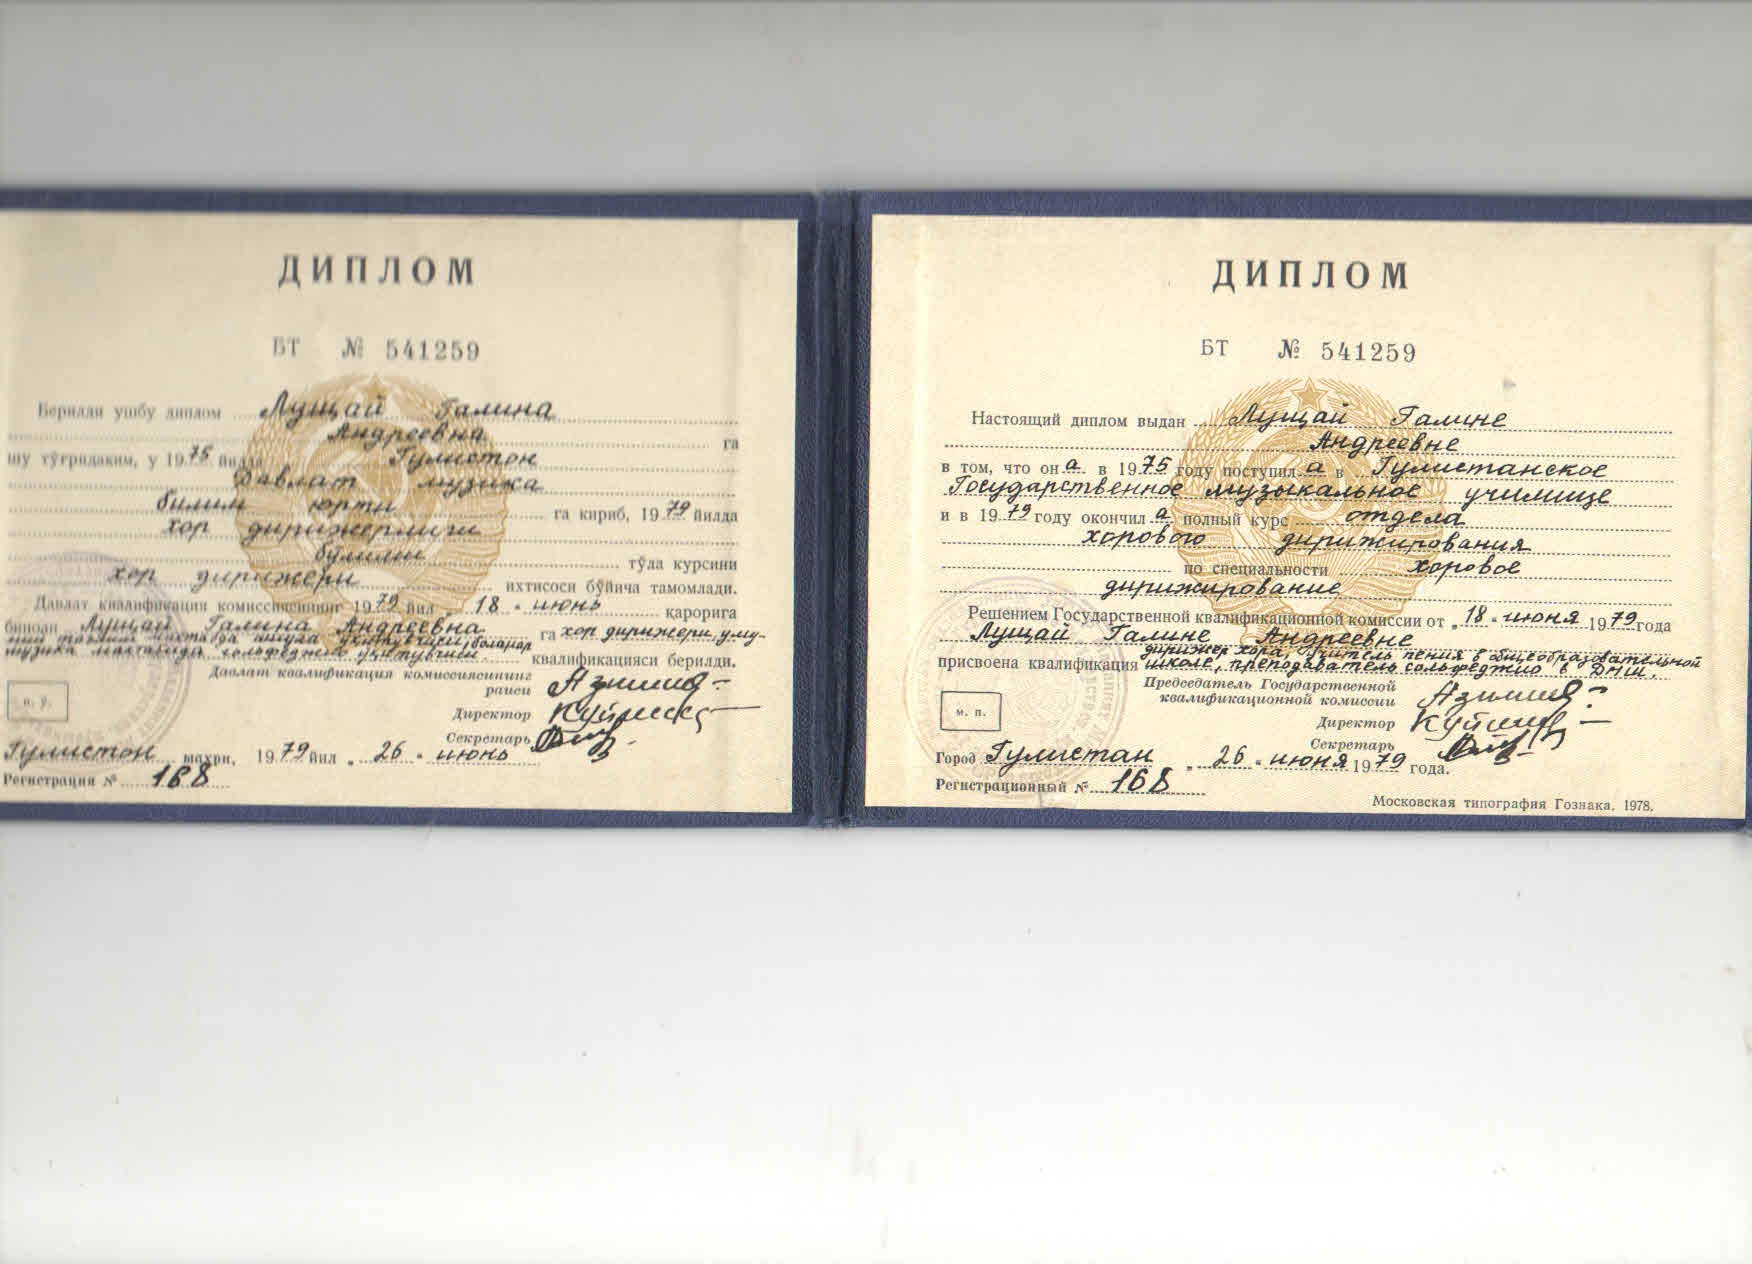 ДИПЛОМ
БТ № 541259
Берилди ушбу диплом Лущай Галина
Андреевна га
шу тўғридаким, у 1975 йилда Гулистон
Давлат музика
билим юрти га кириб, 1979 йилда
хор дирижерлиги
бўлими тўла курсини
хор дирижери ихтисоси бўйича тамомлади.
Давлат квалификация комиссиясининг 1979 йил „18" июнь қарорига
биноан Лущай Галина Андреевна га хор дирижери, уму-
мий таълим мактабда ашула ўқитувчиси, болалар
музика мактабида сольфеджио ўқитувчиси. квалификацияси берилди.
Давлат квалификация комиссиясининг
раиси
Директор
Секретарь
м. ў.
Гулистон шаҳри, 1979 йил „26" июнь
Регистрация № 168
ДИПЛОМ
БТ № 541259
Настоящий диплом выдан Лущай Галине
Андреевне
в том, что она в 1975 году поступила в Гулистанское
Государственное музыкальное училище
и в 1979 году окончила полный курс отдела
хорового дирижирования
по специальности хоровое
дирижирование
Решением Государственной квалификационной комиссии от „18" июня 1979 года
Лущай Галине Андреевне
дирижер хора, учитель пения в общеобразовательной
присвоена квалификация школе, преподаватель сольфеджио в ДМШ.
Председатель Государственной
квалификационной комиссии
Директор
Секретарь
м. п.
Город Гулистан „26" июня 1979 года.
Регистрационный № 168
Московская типография Гознака. 1978.